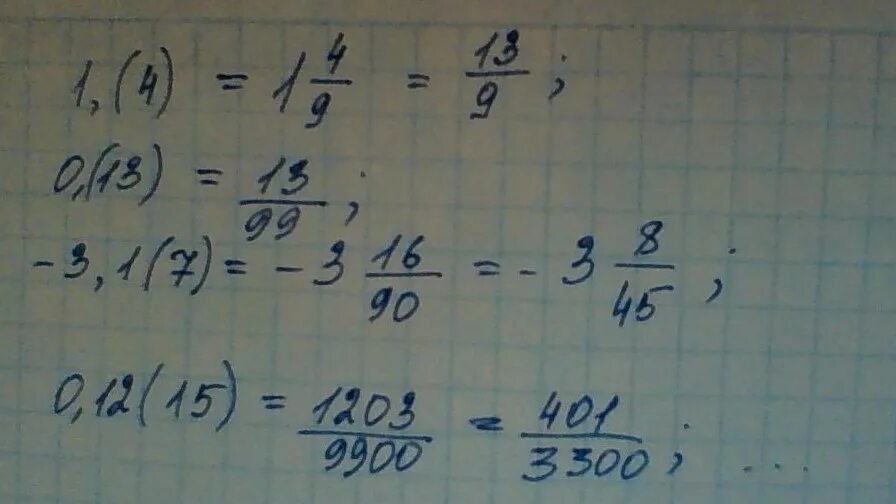 1,(4) = 1 4/9 = 13/9 ;
0,(13) = 13/99 ;
-3,1(7) = -3 16/90 = -3 8/45 ;
0,12(15) = 1203/9900 = 401/3300 ; ...